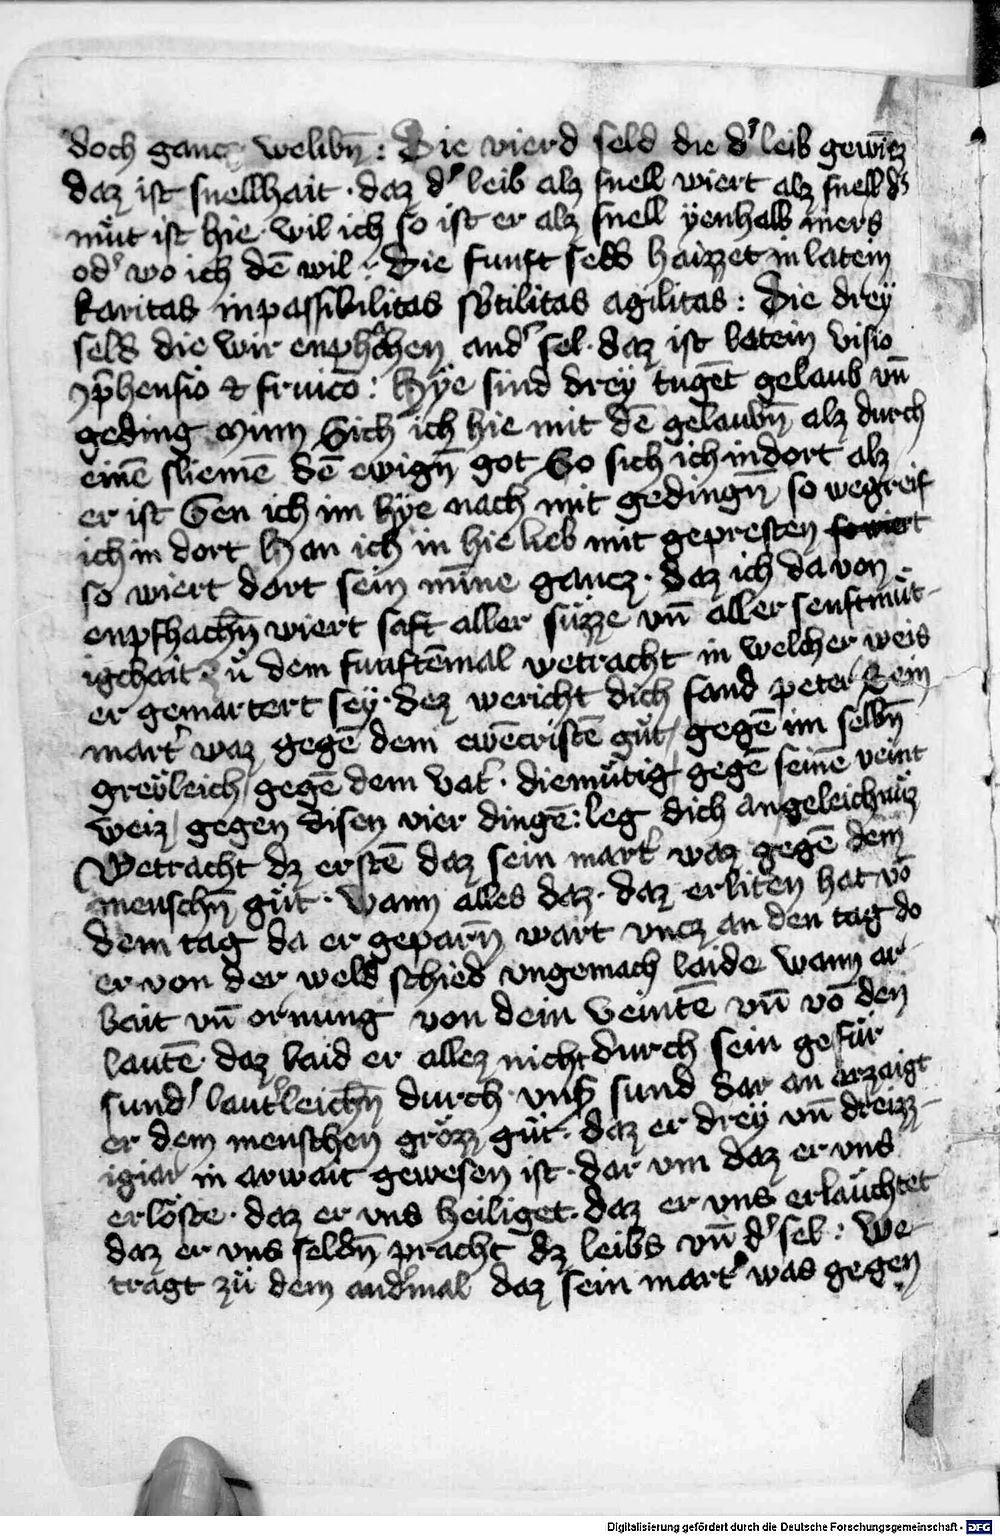 doch gancz welibn̄ : Die vierd seld die d' leib gewīcz
daz ist snellhait · daz d' leib alz snell wiert alz snell d's
mŭt ist hie · wil ich so ist er alz snell yenhalb mers
od' wo ich dē wil : Die funft seld haizzet in latein
karitas inpassibilitas sŭtilitas agilitas : Die drey
seld die wir enphahen and' sel · daz ist latein visio
ꝯp̄hensio & fruicō : hÿe sind dreÿ tugēt gelaub vn̄
geding minn Sich ich hie mit dē gelaubn̄ alz durch
einē sliemē dē ewign̄ got So sich ich in dort alz
er ist Gen ich im hÿe nach mit gedingn̄ so wegreif
ich in dort Han ich in hie lieb mit gepresten so wiert
so wiert dort sein mīne gancz · daz ich da von
enpfhachn̄ wiert saft aller sŭzze vn̄ aller senftmŭt-
igchait Zŭ dem funftēmal wetracht in welcher weis
er gemartert sey · dez wericht dich sand peter Sein
mart' waz gegē dem ewēcristē gŭt / gegē im selbn̄
greŭleich / gegē dem vat' · diemŭtig / gegē seinē veint
weiz / gegen disen vier dingē : leg dich an geleichnŭz
Wetracht dz erstē daz sein mart' waz gegē dem
menschn̄ gŭt · wann alles daz · daz er liten hat vō
dem tag da er geparn̄ wart vncz an den tag do
er von der weld schied vngemach laide wann ar-
bait vn̄ ornung von dein veintē vn̄ vō den
lautē · daz laid er allez nicht durch sein gefŭr
sund' laut'leichn̄ durch vns' sund dar an erzaigt
er dem menschen grŏzz gŭt · daz er dreÿ vn̄ dreizz-
igiar in arwait gewesen ist · dar vm daz er vns
erlöste · daz er vns heiliget · daz er vns erlaŭchtet
daz er vns seldn̄ pracht dz leibs vn̄ d' sel : We-
tragt zŭ dem and'mal daz sein mart' was gegen
Digitalisierung gefördert durch die Deutsche Forschungsgemeinschaft - DFG